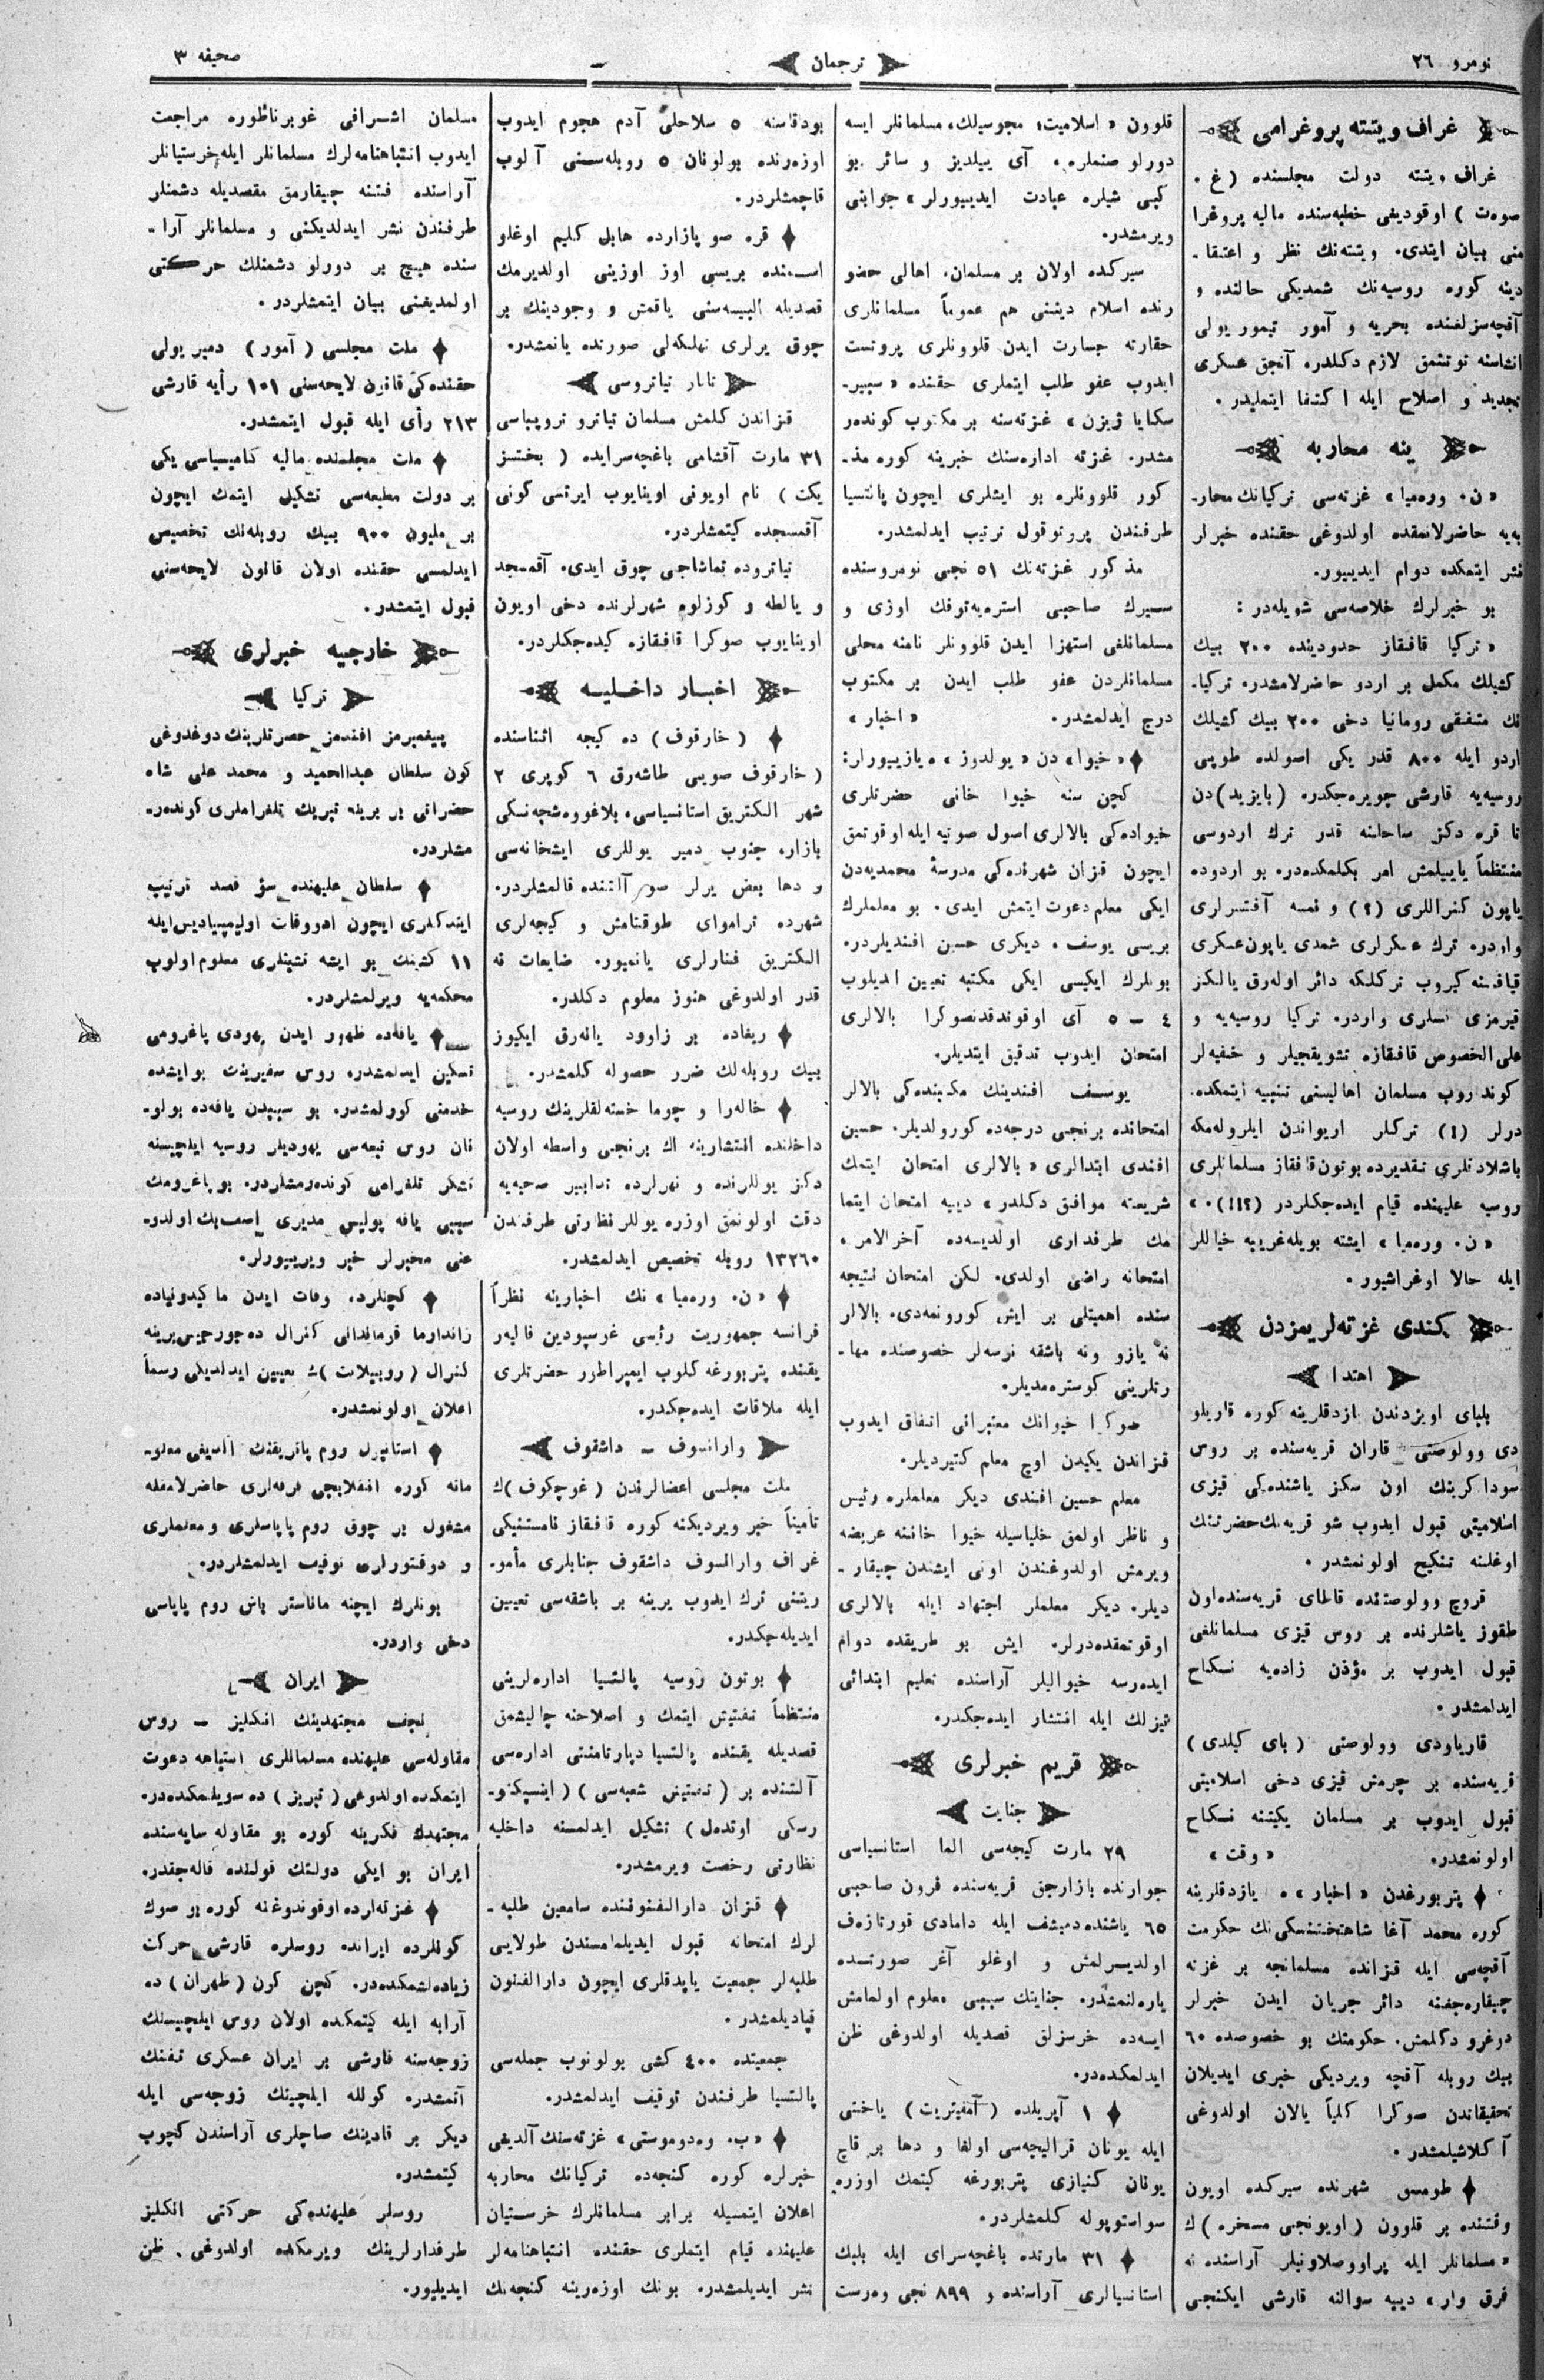 نومرو ٢٦
ترجمان
صحیفه ٣
غراف ویتته پروغرامی
غراف ویتته دولت مجلسنده (غ .
صوەت) اوقودیغی خطبه‌سنده مالیه پروغرا
منی بیان ایتدی. ویتته‌نك نظر و اعتقا-
دینه کوره روسیه‌نك شمدیکی حالنده و
آقچه‌سزلغنده بحریه و آمور تیمور یولی
انشاسنه توتشمق لازم دکلدر. آنجق عسکری
تجدید و اصلاح ایله اکتفا ایتملیدر.
ینه محاربه
«ن. ورەمیا» غزته‌سی ترکیانك محار-
به‌یه حاضرلانمقده اولدوغی حقنده خبرلر
نشر ایتمکده دوام ایدییور.
بو خبرلرك خلاصه‌سی شویله‌در :
«ترکیا قافقاز حدودینده ٢٠٠ بیك
کشیلك مکمل بر اردو حاضرلامشدر. ترکیا-
نك متفقی رومانیا دخی ٢٠٠ بیك کشیلك
اردو ایله ٨٠٠ قدر یکی اصولده طوپی
روسیه‌یه قارشی چویره‌جکدر. (بایزید) دن
تا قره دکز ساحلنه قدر ترك اردوسی
منتظماً یاییلمش امر بکلمکده‌در. بو اردوده
یاپون کنراللری (؟) و نمسه آفتسرلری
واردر. ترك عسکرلری شمدی یاپون عسکری
قیافتنه کیروب ترکلکه دائر اوله‌رق یالکز
قیرمزی فسلری واردر. ترکیا روسیه‌یه و
علی الخصوص قافقازه تشویقجیلر و خفیه‌لر
کوندروب مسلمان اهالیسنی تنبیه ایتمکده.
درلر (!) ترکلر اریواندن ایلروله‌مکه
باشلادقلری تقدیرده بوتون قافقاز مسلمانلری
روسیه علیهنده قیام ایده‌جکلردر (؟!!).»
«ن. ورەمیا» ایشته بویله غریبه خیاللر
ایله حالا اوغراشیور.
کندی غزته‌لریمزدن
اهتدا
بلبای اویزدندن یازدقلرینه کوره قاریلو
دی وولوصتی قاران قریه‌سنده بر روس
سوداکرینك اون سکز یاشنده‌کی قیزی
اسلامیتی قبول ایدوب شو قریه‌نك حضرتنك
اوغلنه تنکیح اولونمشدر.
قروچ وولوصتنده قالمای قریه‌سنده اون
طقوز یاشلرنده بر روس قیزی مسلمانلغی
قبول ایدوب بر مؤذن زاده‌یه نکاح
ایدلمشدر.
قاریاودی وولوصتی (بای کیلدی)
قریه‌سنده بر چرمش قیزی دخی اسلامیتی
قبول ایدوب بر مسلمان یکیتنه نکاح
اولونمشدر. «وقت»
پتربورغدن «اخبار»ه یازدقلرینه
کوره محمد آغا شاهتختنسکی‌نك حکومت
آقچه‌سی ایله قزانده مسلمانجه بر غزته
چیقاره‌جغنه دائر جریان ایدن خبرلر
دوغرو دکلمش. حکومتك بو خصوصده ٦٠
بیك روبله آقچه ویردیکی خبری ایدیلان
تحقیقاتدن صوکرا کلیاً یالان اولدوغی
آکلاشیلمشدر.
طومسق شهرنده سیرکده اویون
وقتنده بر قلوون (اویونجی مسخره) ك
«مسلمانلر ایله پراووصلاونیلر آراسنده نه
فرق وار» دییه سوالنه قارشی ایکنجی
قلوون «اسلامیت؛ مجوسیلك، مسلمانلر ایسه
دورلو صنملره، آی ییلدیز و سائر بو
کبی شیلره عبادت ایدییورلر» جوابنی
ویرمشدر.
سیرکده اولان بر مسلمان، اهالی حضو
رنده اسلام دیننی هم عموماً مسلمانلری
حقارته جسارت ایدن قلوونلری پروتست
ایدوب عفو طلب ایتملری حقنده «سیبیر-
سکایا ژیزن» غزته‌سنه بر مکتوب کوندەر
مشدر. غزته اداره‌سنك خبرینه کوره مذ-
کور قلوونلره بو ایشلری ایچون پالتسیا
طرفندن پروتوقول ترتیب ایدلمشدر.
مذکور غزته‌نك ٥١ نجی نومروسنده
سیرك صاحبی استرەپه‌توفك اوزی و
مسلمانلغی استهزا ایدن قلوونلر نامنه محلی
مسلمانلردن عفو طلب ایدن بر مکتوب
درج ایدلمشدر. «اخبار»
«خیوا» دن «یولدوز»ه یازییورلر:
کچن سنه خیوا خانی حضرتلری
خیواده‌کی بالالری اصول صوتیه ایله اوقوتمق
ایچون قزان شهرنده‌کی مدرسهٔ محمدیه‌دن
ایکی معلم دعوت ایتمش ایدی. بو معلملرك
بریسی یوسف، دیکری حسین افندیلردر.
بونلرك ایکیسی ایکی مکتبه تعیین ایدیلوب
٤ — ٥ آی اوقوندقدنصوکرا بالالری
امتحان ایدوب تدقیق ایتدیلر.
یوسف افندینك مکتبنده‌کی بالالر
امتحانده برنجی درجه‌ده کورولدیلر. حسین
افندی ابتدالری «بالالری امتحان ایتمك
شریعته موافق دکلدر» دییه امتحان ایتما
مك طرفداری اولدیسه‌ده آخر الامر،
امتحانه راضی اولدی. لکن امتحان نتیجه
سنده اهمیتلی بر ایش کورونمه‌دی. بالالر
نه یازو ونه باشقه نرسه‌لر خصوصنده مها-
رتلرینی کوستره‌مدیلر.
صوکرا خیوانك معتبرانی اتفاق ایدوب
قزاندن یکیدن اوچ معلم کتیردیلر.
معلم حسین افندی دیکر معلملره رئیس
و ناظر اولمق خلیاسیله خیوا خاننه عریضه
ویرمش اولدوغندن اونی ایشندن چیقار-
دیلر. دیکر معلملر اجتهاد ایله بالالری
اوقوتمقده‌درلر. ایش بو طریقده دوام
ایدەرسه خیوالیلر آراسنده تعلیم ابتدائی
تیزلك ایله انتشار ایده‌جکدر.
قریم خبرلری
جنایت
٢٩ مارت کیجه‌سی الما استانسیاسی
جوارنده بازارجق قریه‌سنده فرون صاحبی
٦٥ یاشنده دمیشف ایله دامادی قورتازەف
اولدیرلمش و اوغلو آغر صورتده
یاره‌لنمشدر. جنایتك سببی معلوم اولمامش
ایسه‌ده خرسزلق قصدیله اولدوغی ظن
ایدلمکده‌در.
١ آپریلده (آمفیتریت) یاختی
ایله یونان قرالیچه‌سی اولغا و دها بر قاچ
یونان کنیازی پتربورغه کیتمك اوزره
سواستوپوله کلمشلردر.
٣١ مارتده باغچه‌سرای ایله بلبك
استانسیالری آراسنده و ٨٩٩ نجی وەرست
بودقاسنه ٥ سلاحلی آدم هجوم ایدوب
اوزەرنده بولونان ٥ روبله‌سنی آلوب
قاچمشلردر.
قره صو پازارده هابل کلیم اوغلو
اسمنده بریسی اوز اوزینی اولدیرمك
قصدیله البیسه‌سنی یاقمش و وجودینك بر
چوق یرلری تهلکه‌لی صورتده یانمشدر.
تاتار تیاتروسی
قزاندن کلمش مسلمان تیاترو تروپپاسی
٣١ مارت آقشامی باغچه‌سرایده (بختسز
یکت) نام اویونی اوینایوب ایرتسی کونی
آقمسجده کیتمشلردر.
تیاتروده تماشاجی چوق ایدی. آقمسجد
و یالطه و کوزلوه شهرلرنده دخی اویون
اوینایوب صوکرا قافقازه کیده‌جکلردر.
اخبار داخلیه
(خارقوف) ده کیجه اثناسنده
(خارقوف صویی طاشەرق ٦ کوپری ٢
شهر الکتریق استانسیاسی، بلاغووەشچه‌نسکی
بازار، جنوب دمیر یوللری ایشخانه‌سی
و دها بعض یرلر صو آلتنده قالمشلردر.
شهرده تراموای طوقتامش و کیجه‌لری
الکتریق فنارلری یانمیور. ضایعات نه
قدر اولدوغی هنوز معلوم دکلدر.
ریغاده بر زاوود یانه‌رق ایکیوز
بیك روبله‌لك ضرر حصوله کلمشدر.
خاله‌را و چوما خسته‌لقلرینك روسیه
داخلنده انتشارینه اك برنجی واسطه اولان
دکز یوللرنده و نهرلرده تدابیر صحیه‌یه
دقت اولونمق اوزره یوللر نظارتی طرفندن
١٣٢٦٠ روبله تخصیص ایدلمشدر.
«ن. ورەمیا» نك اخبارینه نظراً
فرانسه جمهوریت رئیسی غوسپودین فالیەر
یقنده پتربورغه کلوب ایمپراطور حضرتلری
ایله ملاقات ایده‌جکدر.
وارانسوف — داشقوف
ملت مجلسی اعضالرندن (غوچکوف)ك
تأمیناً خبر ویردیکنه کوره قافقاز نامستنیکی
غراف وارانسوف داشقوف جنابلری مأمو-
ریتنی ترك ایدوب یرینه بر باشقه‌سی تعیین
ایدیله‌جکدر.
بوتون روسیه پالتسیا اداره‌لرینی
منتظماً تفتیش ایتمك و اصلاحنه چالیشمق
قصدیله یقنده پالتسیا دپارتامنتی اداره‌سی
آلتنده بر (تفتیش شعبه‌سی) (اینسپکتو-
رسکی اوتدەل) تشکیل ایدلمسنه داخلیه
نظارتی رخصت ویرمشدر.
قزان دار الفنوننده سامعین طلبه-
لرك امتحانه قبول ایدیلمامسندن طولایی
طلبه‌لر جمعیت یاپدقلری ایچون دار الفنون
قپادیلمشدر.
جمعیتده ٤٠٠ کشی بولونوب جمله‌سی
پالتسیا طرفندن توقیف ایدلمشدر.
«ب. وەدوموستی» غزته‌سنك آلدیغی
خبرلره کوره کنجه‌ده ترکیانك محاربه
اعلان ایتمسیله برابر مسلمانلرك خرستیان
علیهنده قیام ایتملری حقنده انتباهنامه‌لر
نشر ایدیلمشدر. بونك اوزەرینه کنجه‌نك
مسلمان اشرافی غوبرناطوره مراجعت
ایدوب انتباهنامه‌لرك مسلمانلر ایله خرستیانلر
آراسنده فتنه چیقارمق مقصدیله دشمنلر
طرفندن نشر ایدلدیکنی و مسلمانلر آرا-
سنده هیچ بر دورلو دشمنلك حرکتی
اولمدیغنی بیان ایتمشلردر.
ملت مجلسی (آمور) دمیر یولی
حقنده‌کی قانون لایحه‌سنی ١٠١ رأیه قارشی
٢١٣ رأی ایله قبول ایتمشدر.
ملت مجلسنده مالیه کامیسیاسی یکی
بر دولت مطبعه‌سی تشکیل ایتمك ایچون
بر ملیون ٩٠٠ بیك روبله‌نك تخصیص
ایدلمسی حقنده اولان قانون لایحه‌سنی
قبول ایتمشدر.
خارجیه خبرلری
ترکیا
پیغمبرمز افندمز حضرتلرینك دوغدوغی
کون سلطان عبدالحمید و محمد علی شاه
حضراتی بر برینه تبریك تلغراملری کوندەر-
مشلردر.
سلطان علیهنده سؤ قصد ترتیب
ایتدکلری ایچون آدووقات اولیمپیادیس ایله
١١ کشینك بو ایشه تشبثلری معلوم اولوب
محکمه‌یه ویرلمشلردر.
یافه‌ده ظهور ایدن یهودی پاغرومی
تسکین ایدلمشدر. روس سفیرینك بو ایشده
خدمتی کورلمشدر. بو سببدن یافه‌ده بولو-
نان روس تبعه‌سی یهودیلر روسیه ایلچیسنه
تشکر تلغرامی کوندەرمشلردر. بو پاغرومك
سببی یافه پولیس مدیری آصف بك اولدو-
غنی مخبرلر خبر ویرییورلر.
کچنلرده وفات ایدن ماکیدونیاده
ژاندارما قوماندانی کنرال ده جورجیس یرینه
کنرال (روبیلانت)ك تعیین ایدلدیکی رسماً
اعلان اولونمشدر.
استانبول روم پاتریقنك آلدیغی معلو-
ماته کوره انقلابجی فرقه‌لری حاضرلامغله
مشغول بر چوق روم پاپاسلری و معلملری
و دوقتورلری توقیف ایدلمشلردر.
بونلرك ایچنه ماناستر باش روم پاپاسی
دخی واردر.
ایران
نجف مجتهدینك انکلیز — روس
مقاوله‌سی علیهنده مسلمانلری انتباهه دعوت
ایتمکده اولدوغی (تبریز) ده سویلمکده‌در.
مجتهدك فکرینه کوره بو مقاوله سایه‌سنده
ایران بو ایکی دولتك قولنده قاله‌جقدر.
غزته‌لرده اوقوندوغنه کوره بو صوك
کونلرده ایرانده روسلره قارشی حرکت
زیاده‌لشمکده‌در. کچن کون (طهران) ده
آرابه ایله کیتمکده اولان روس ایلچیسنك
زوجه‌سنه قارشی بر ایران عسکری تفنك
آتمشدر. کولله ایلچینك زوجه‌سی ایله
دیکر بر قادینك صاچلری آراسندن کچوب
کیتمشدر.
روسلر علیهنده‌کی حرکتی انکلیز
طرفدارلرینك ویرمکده اولدوغی ظن
ایدیلیور.